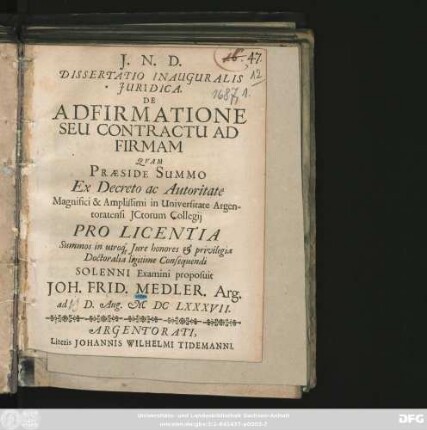 J. N. D.
47.
12
1687,1.
DISSERTATIO INAUGURALIS
JURIDICA.
DE
ADFIRMATIONE
SEU CONTRACTU AD
FIRMAM
QUAM
PRÆSIDE SUMMO
Ex Decreto ac Autoritate
Magnifici & Amplissimi in Universitate Argen-
toratensi JCtorum Collegij
PRO LICENTIA
Summos in utroq; Jure honores & privilegia
Doctoralia legitime Consequendi
SOLENNI Examini proposuit
JOH. FRID. MEDLER. Arg.
ad D. Aug. M DC LXXXVII.
ARGENTORATI,
Literis JOHANNIS WILHELMI TIDEMANNI.
Universitäts- und Landesbibliothek Sachsen-Anhalt
DFG